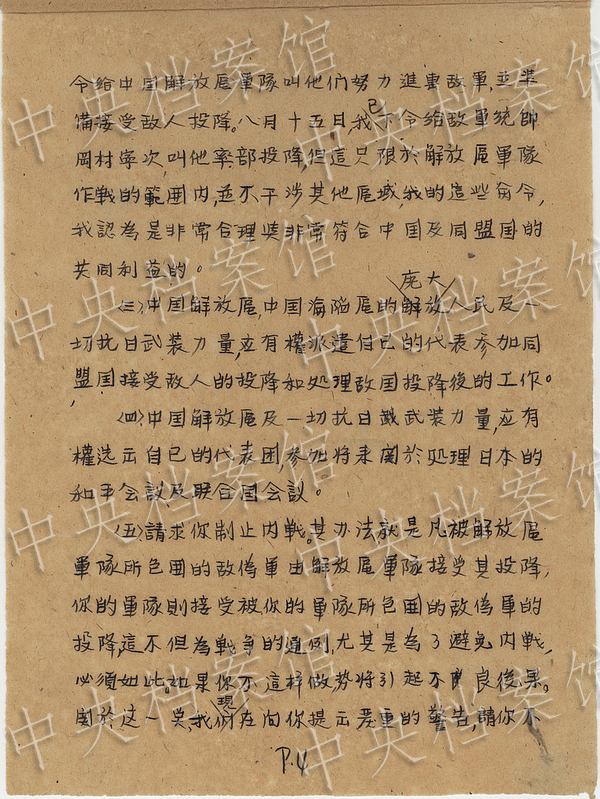 令给中国解放區軍隊叫他们努力進事敌軍,並準
備接受敌人投降。八月十五日,我已下令给敌軍统帥
岡村寧次,叫他率部投降,但這只限於解放區軍隊
作戦的範囲内,並不干涉其他區域,我的這些命令,
我認為是非常合理些非常符合中国及同盟国的
共同利益的。
㈢中国解放區,中国淪陷區的庞大解放人民及一
切抗日武装力量,应有權派遣自己的代表参加同
盟国接受敌人的投降和处理敌国投降後的工作。
㈣中国解放區及一切抗日武装力量,应有
權选出自己的代表团,参加将来関於处理日本的
和平会議及联合国会議。
㈤請求你制止内戦。其办法就是凡被解放區
軍隊所包囲的敌偽軍由解放區軍隊接受其投降,
你的軍隊則接受被你的軍隊所包囲的敌偽軍的
投降,這不但為戦争的通例,尤其是為了避免内戦,
必须如此。如果你不這样做,势将引起不良後果。
関於这一点,我们现在向你提出严重的警告,請你不
P.4
中央档案馆